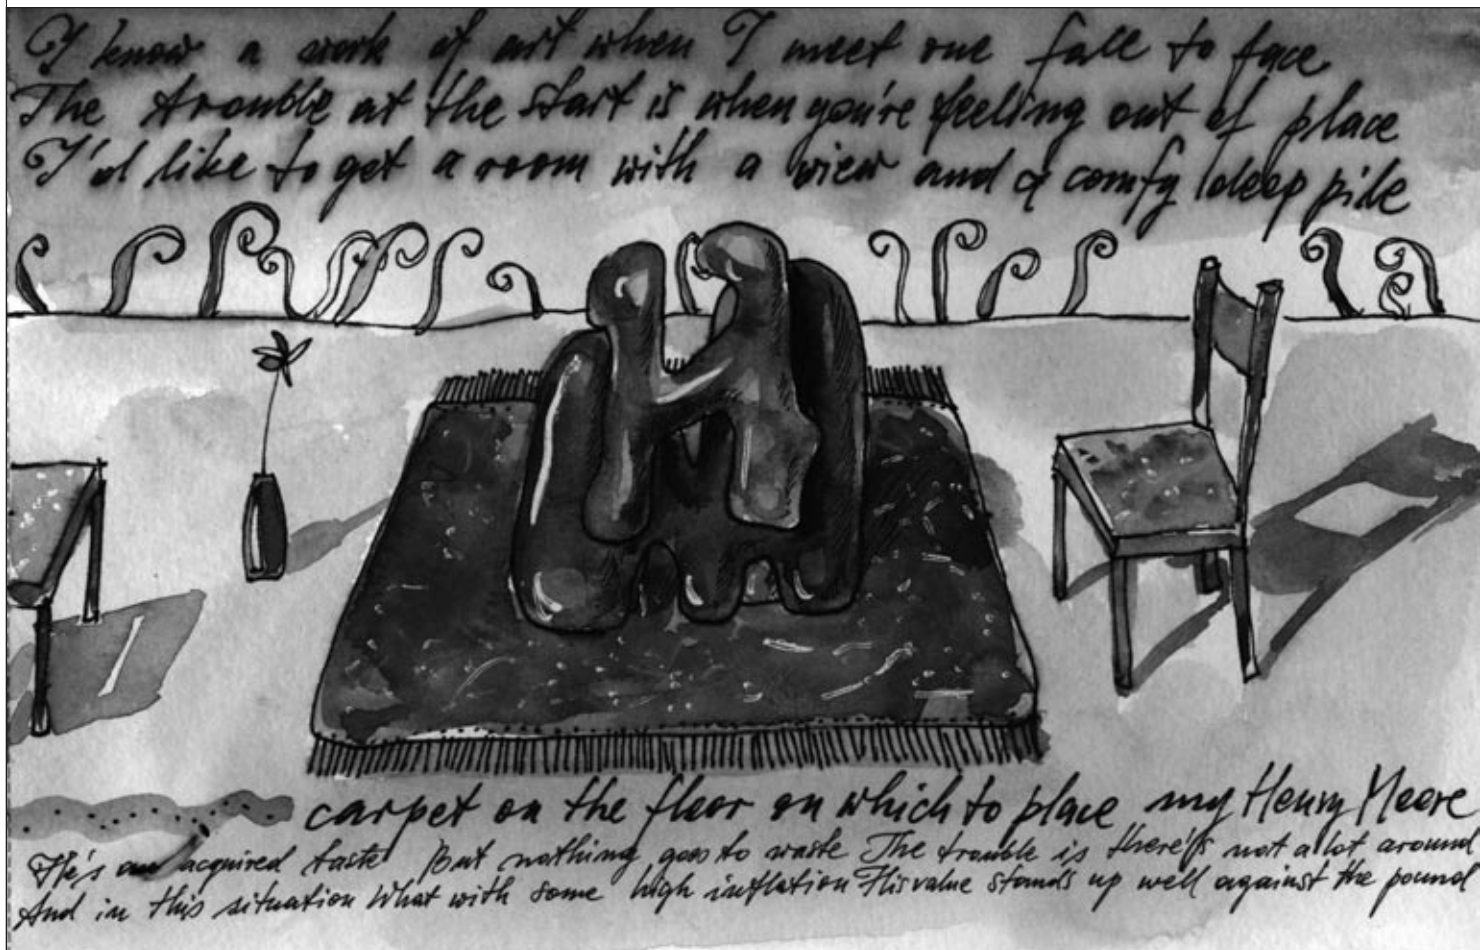 I know a work of art when I meet one fall to face
The trouble at the start is when you're feeling out of place
I'd like to get a room with a view and a comfy deep pile
carpet on the floor on which to place my Henry Moore
He's an acquired taste But nothing goes to waste The trouble is there's not a lot around
And in this situation What with some high inflation His value stands up well against the pound